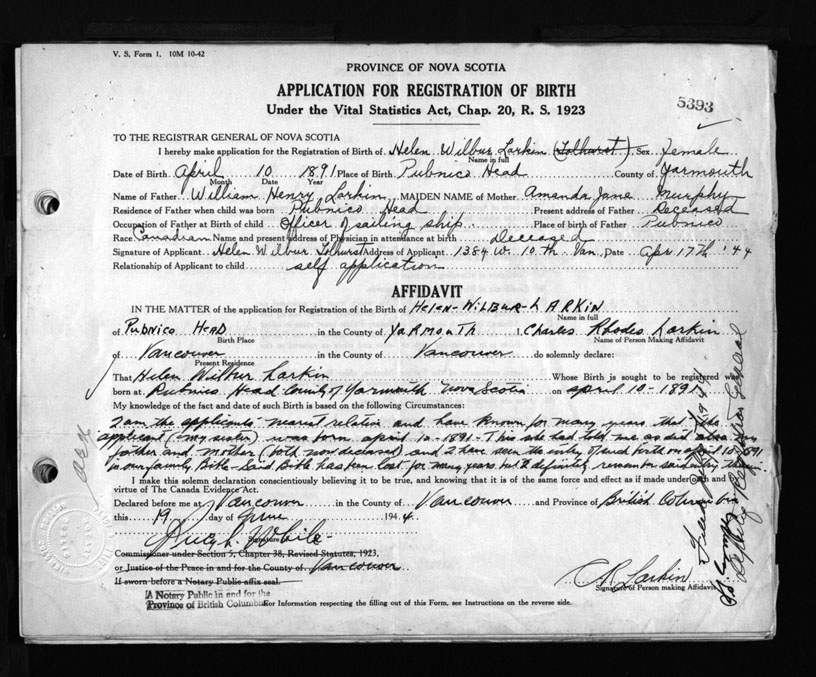 V. S. Form 1. 10M 10-42
PROVINCE OF NOVA SCOTIA
APPLICATION FOR REGISTRATION OF BIRTH
Under the Vital Statistics Act, Chap. 20, R. S. 1923
5393
TO THE REGISTRAR GENERAL OF NOVA SCOTIA
I hereby make application for the Registration of Birth of Helen Wilbur Larkin (Tolhurst) Sex Female
Name in full
Date of Birth April 10 1891 Place of Birth Pubnico Head County of Yarmouth
Month Date Year
Name of Father William Henry Larkin MAIDEN NAME of Mother Amanda Jane Murphy
Residence of Father when child was born Pubnico Head Present address of Father Deceased
Occupation of Father at Birth of child Officer of sailing ship Place of birth of Father Pubnico
Race Canadian Name and present address of Physician in attendance at birth Deceased
Signature of Applicant Helen Wilbur Tolhurst Address of Applicant 1384 W. 10th Van. Date Apr 17th '44
Relationship of Applicant to child self application
AFFIDAVIT
IN THE MATTER of the application for Registration of the Birth of HELEN-WILBUR-LARKIN
Name in full
of PUBNICO HEAD in the County of YARMOUTH I, Charles Rhodes Larkin
Birth Place Name of Person Making Affidavit
of Vancouver in the County of Vancouver do solemnly declare:
Present Residence
That Helen Wilbur Larkin Whose Birth is sought to be registered was
born at Pubnico Head County of Yarmouth Nova Scotia on April 10-1891
My knowledge of the fact and date of such Birth is based on the following Circumstances:
I am the applicants nearest relative and have known for many years that the
applicant (my sister) was born April 10-1891-This she had told me as did also my
father and mother (both now deceased) and I have seen the entry of such birth on April 10-1891
in our family Bible-Said Bible has been lost for many years but I definitely remember said entry therein
I make this solemn declaration conscientiously believing it to be true, and knowing that it is of the same force and effect as if made under oath and by
virtue of The Canada Evidence Act.
Declared before me at Vancouver in the County of Vancouver and Province of British Columbia
this 19 day of June 1944.
Signature
Commissioner under Section 5, Chapter 38, Revised Statutes, 1923,
or Justice of the Peace in and for the County of Vancouver
If sworn before a Notary Public affix seal.
A Notary Public in and for the
Province of British Columbia
C R Larkin
Signature of Person making Affidavit
For Information respecting the filling out of this Form, see Instructions on the reverse side.
Deputy Registrar General